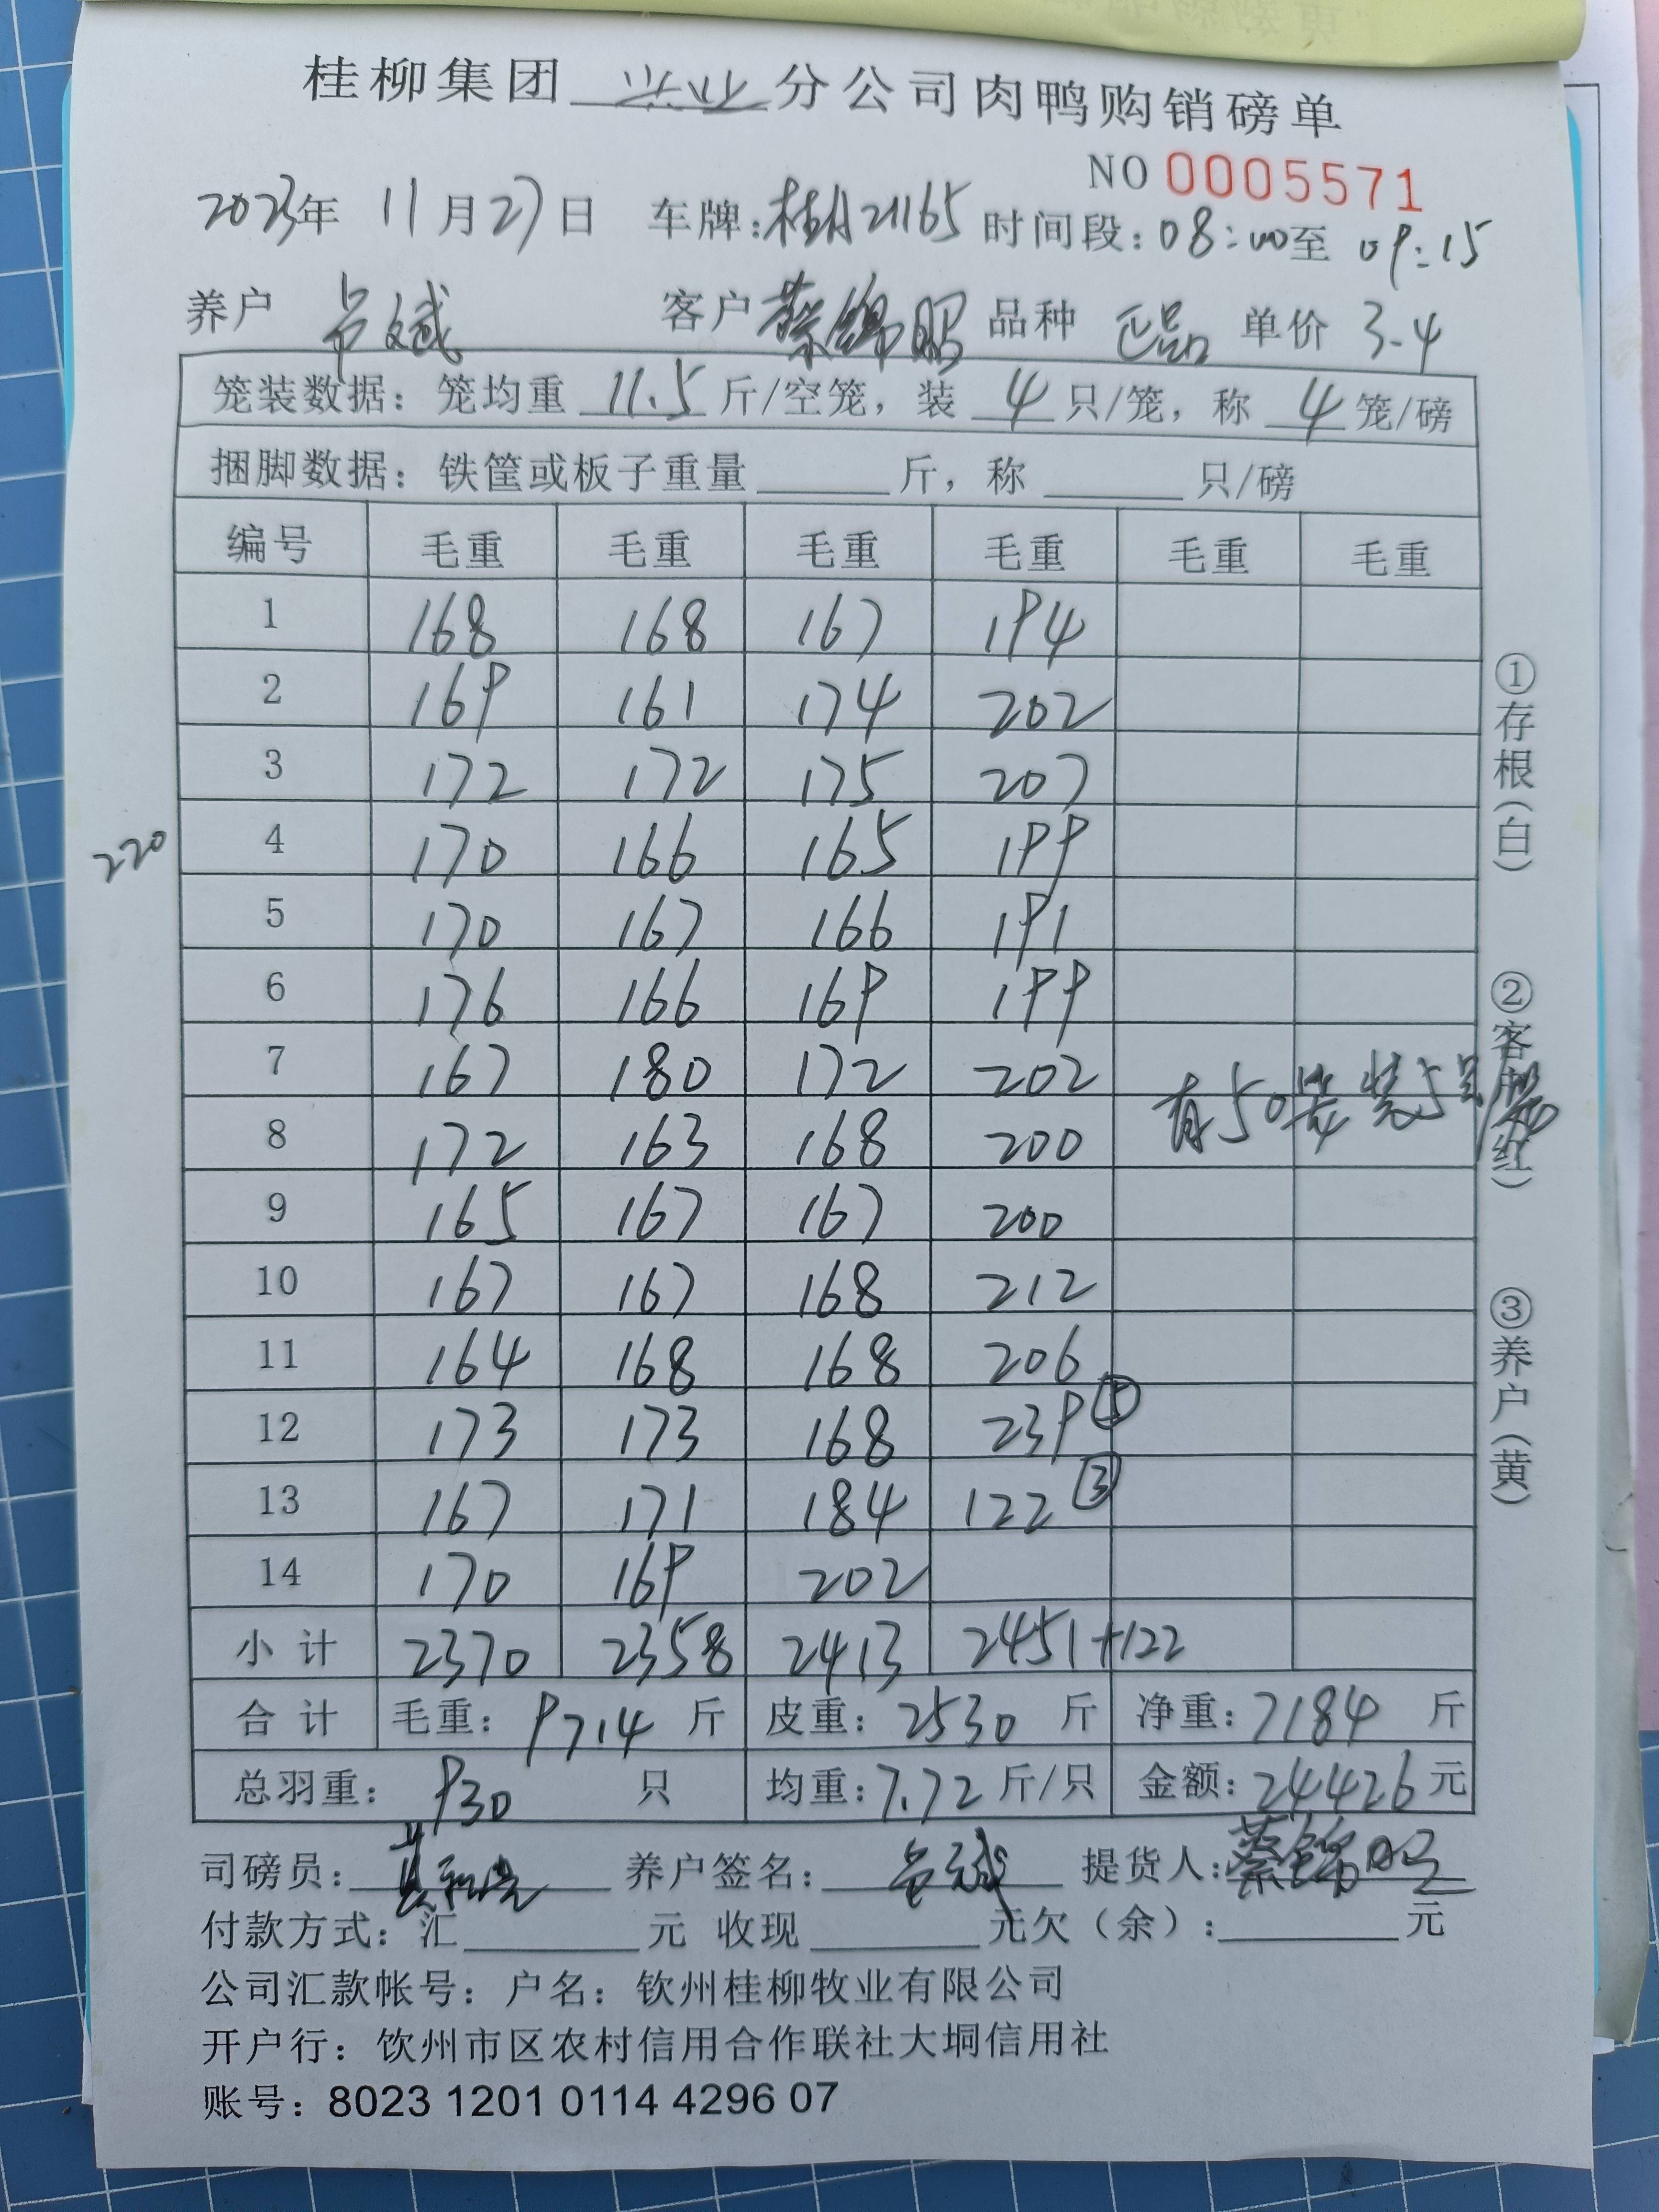 桂柳集团 兴业 分公司肉鸭购销磅单
NO 0005571
2023年 11月27日 车牌:桂A21165 时间段:08:00至 09:15
养户 客户 蔡锦昭 品种 正品 单价 3.4
笼装数据：笼均重 11.5 斤/空笼，装 4 只/笼，称 4 笼/磅
捆脚数据：铁筐或板子重量 斤，称 只/磅
编号 毛重 毛重 毛重 毛重 毛重 毛重
1 168 168 167 194
2 169 161 174 202
3 172 172 175 207
220
4 170 166 165 199
5 170 167 166 191
6 176 166 169 199
7 167 180 172 202
有50笼装5只
8 172 163 168 200
9 165 167 167 200
10 167 167 168 212
11 164 168 168 206
12 173 173 168 239⑤
13 167 171 184 122③
14 170 169 202
小计 2370 2358 2413 2451+122
合计 毛重：9714 斤 皮重：2530 斤 净重：7184 斤
总羽重：930 只 均重：7.72 斤/只 金额：24426 元
司磅员： 养户签名： 提货人：蔡锦昭
付款方式：汇 元 收现 元欠（余）： 元
公司汇款帐号：户名：钦州桂柳牧业有限公司
开户行：钦州市区农村信用合作联社大垌信用社
账号：8023 1201 0114 4296 07
①存根（白）
②客户（红）
③养户（黄）